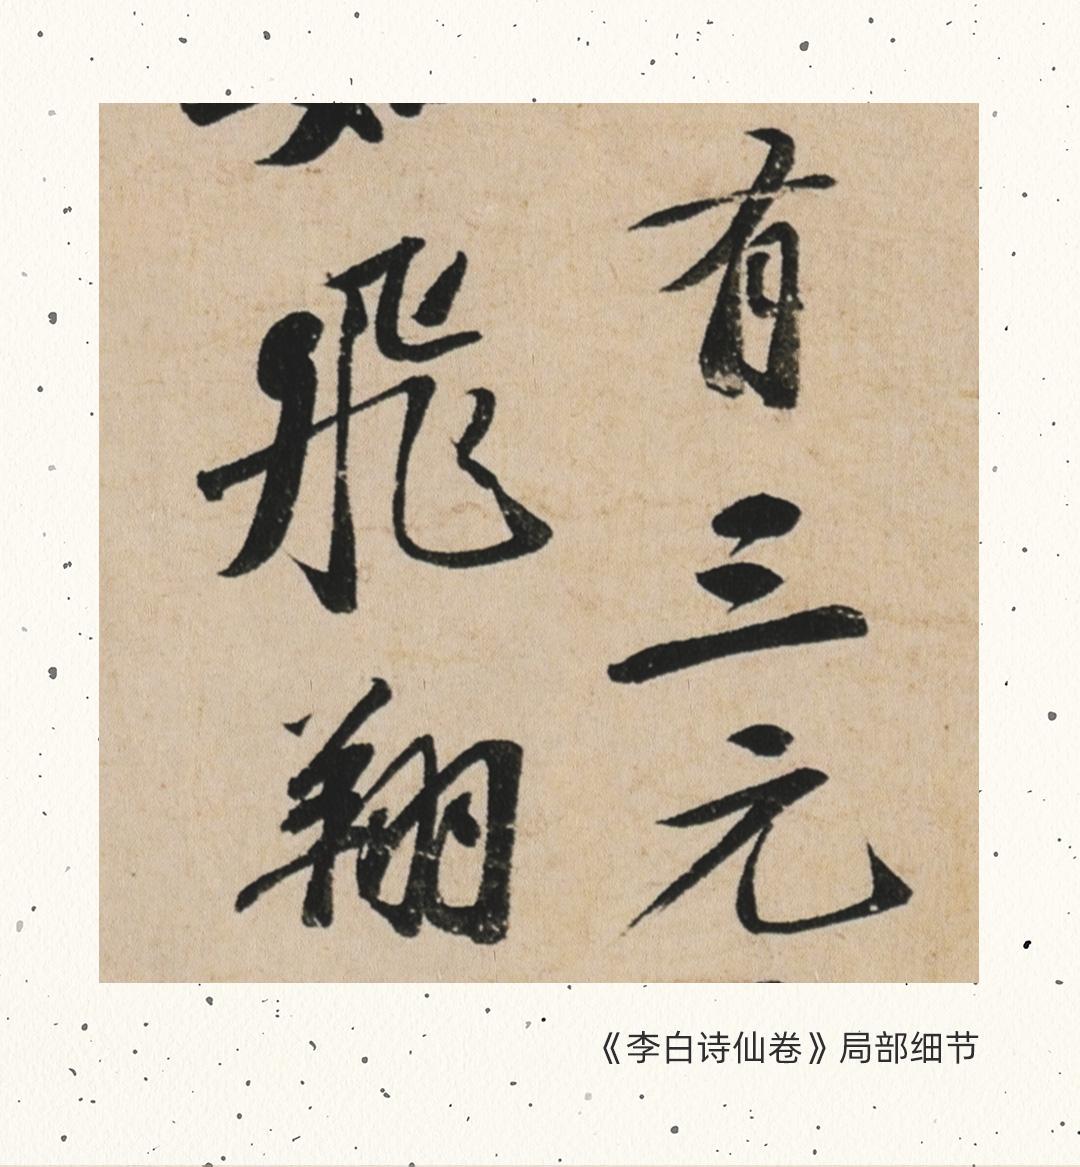 有三元
飛翔
《李白诗仙卷》局部细节